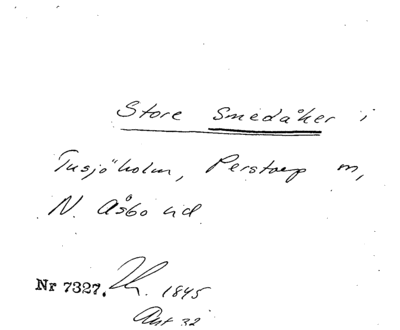 Store Smedåker i
Tusjöholm, Perstorp m,
N. Åsbo hd
Nr 7327. 1845
Ant 32